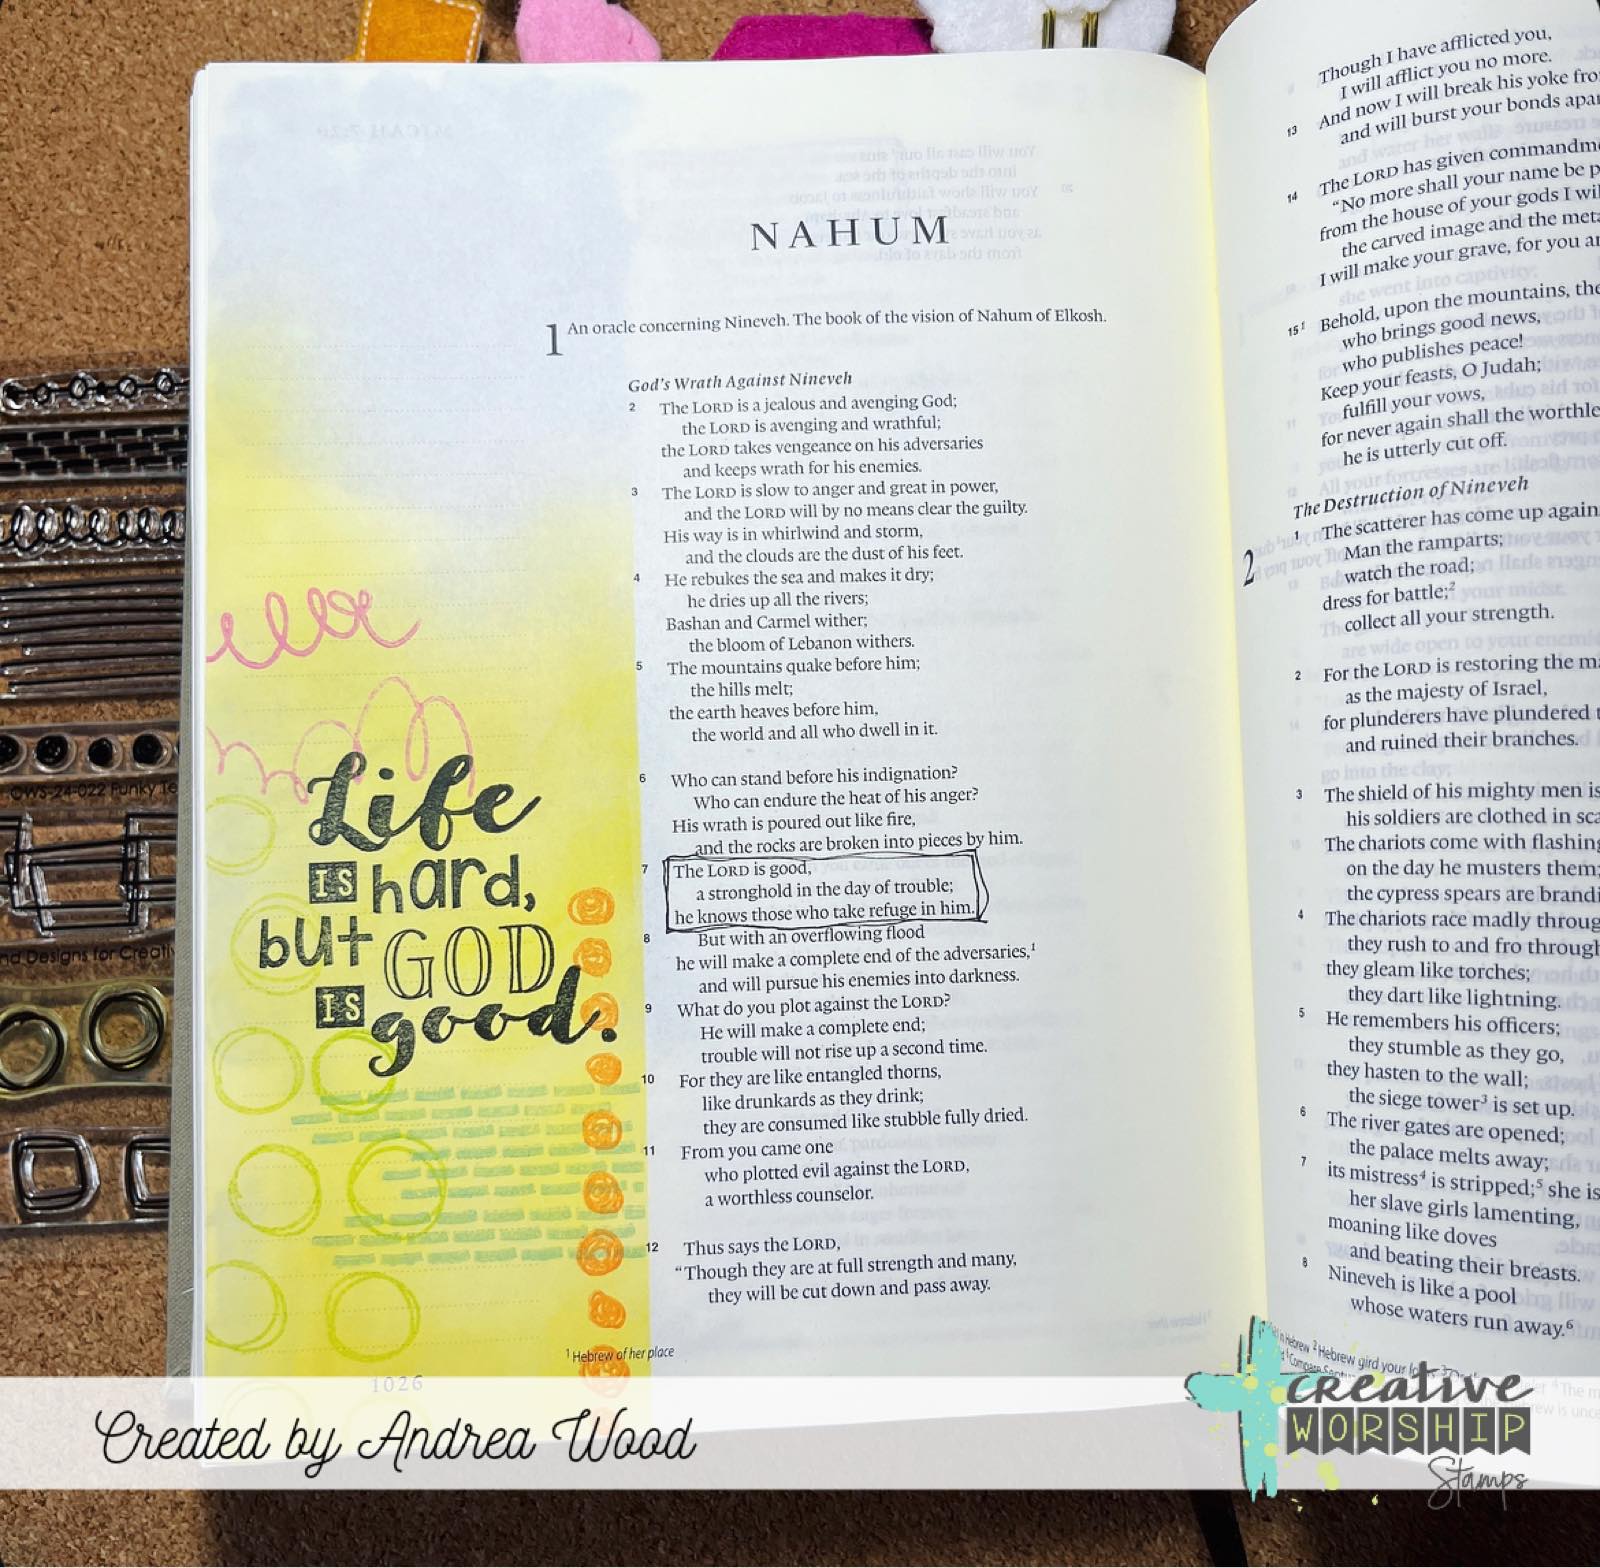 NAHUM
1 An oracle concerning Nineveh. The book of the vision of Nahum of Elkosh.
God's Wrath Against Nineveh
2 The LORD is a jealous and avenging God;
the LORD is avenging and wrathful;
the LORD takes vengeance on his adversaries
and keeps wrath for his enemies.
3 The LORD is slow to anger and great in power,
and the LORD will by no means clear the guilty.
His way is in whirlwind and storm,
and the clouds are the dust of his feet.
4 He rebukes the sea and makes it dry;
he dries up all the rivers;
Bashan and Carmel wither;
the bloom of Lebanon withers.
5 The mountains quake before him;
the hills melt;
the earth heaves before him,
the world and all who dwell in it.
6 Who can stand before his indignation?
Who can endure the heat of his anger?
His wrath is poured out like fire,
and the rocks are broken into pieces by him.
7 The LORD is good,
a stronghold in the day of trouble;
he knows those who take refuge in him.
8 But with an overflowing flood
he will make a complete end of the adversaries,¹
and will pursue his enemies into darkness.
9 What do you plot against the LORD?
He will make a complete end;
trouble will not rise up a second time.
10 For they are like entangled thorns,
like drunkards as they drink;
they are consumed like stubble fully dried.
11 From you came one
who plotted evil against the LORD,
a worthless counselor.
12 Thus says the LORD,
"Though they are at full strength and many,
they will be cut down and pass away.
¹ Hebrew of her place
1026
Life
IS hard,
but GOD
IS good.
Though I have afflicted you,
I will afflict you no more.
13 And now I will break his yoke
and will burst your bonds
14 The LORD has given
"No more shall your name be
from the house of your gods I
the carved image and the
I will make your grave, for you
15¹ Behold, upon the mountains, the
who brings good news,
who publishes peace!
Keep your feasts, O Judah;
fulfill your vows,
for never again shall the
he is utterly cut off.
The Destruction of Nineveh
2 1 The scatterer has come up
Man the ramparts;
watch the road;
dress for battle;²
collect all your strength.
2 For the LORD is restoring the
as the majesty of Israel,
for plunderers have plundered
and ruined their branches.
3 The shield of his mighty men is
his soldiers are clothed in
The chariots come with flashing
on the day he musters them;
the cypress spears are
4 The chariots race madly
they rush to and fro
they gleam like torches;
they dart like lightning.
5 He remembers his officers;
they stumble as they go,
they hasten to the wall;
the siege tower³ is set up.
6 The river gates are opened;
the palace melts away;
7 its mistress⁴ is stripped;⁵ she is
her slave girls lamenting,
moaning like doves
and beating their breasts.
8 Nineveh is like a pool
whose waters run away.⁶
Hebrew ² Hebrew gird your
CWS-24-022 Funky
Designs for
Created by Andrea Wood
creative
WORSHIP
Stamps